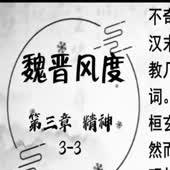 魏晋风度
第三章 精神
3-3
不奇
汉末
教几
词。
桓玄
然而